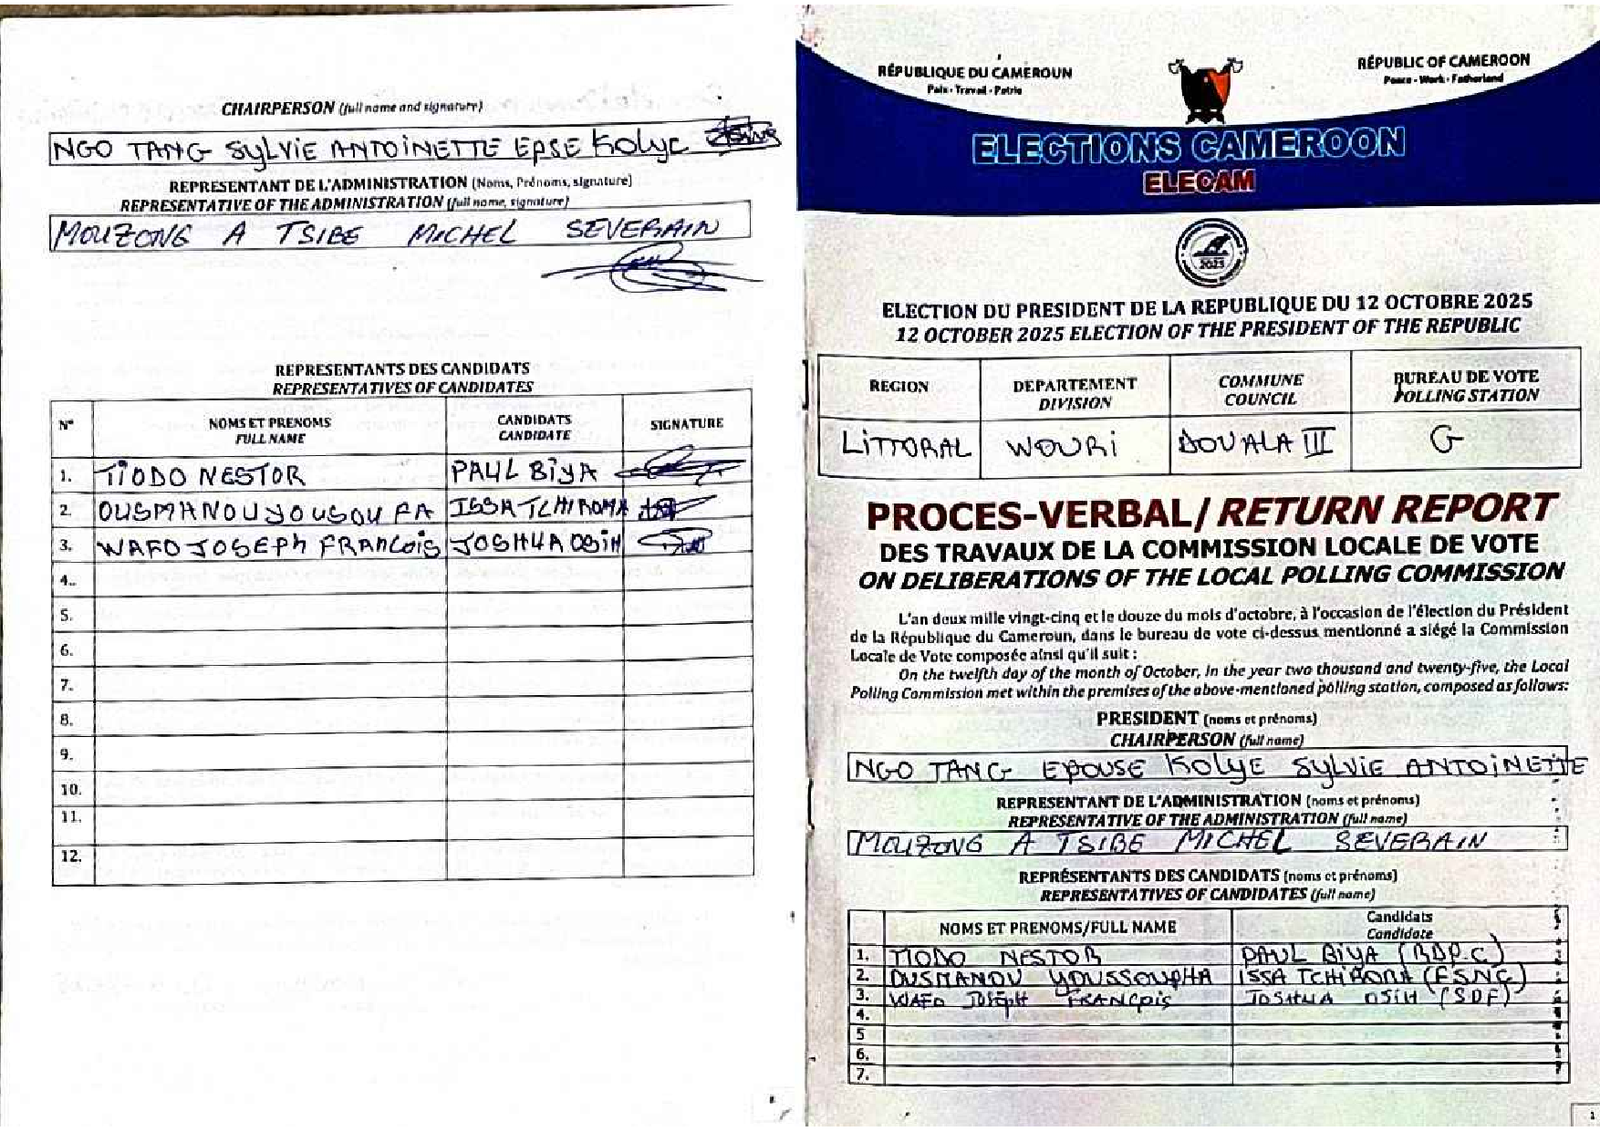 CHAIRPERSON (full name and signature)
NGO TANG SYLVIE ANTOINETTE EPSE KOLYE
REPRESENTANT DE L'ADMINISTRATION (Noms, Prénoms, signature)
REPRESENTATIVE OF THE ADMINISTRATION (full name, signature)
MOUZONG A TSIBE MICHEL SEVERAIN
REPRESENTANTS DES CANDIDATS
REPRESENTATIVES OF CANDIDATES
N° NOMS ET PRENOMS FULL NAME CANDIDATS CANDIDATE SIGNATURE
1. TIODO NESTOR PAUL BIYA
2. OUSMANOU YOUSOUFA ISSA TCHIROMA
3. WAFO JOSEPH FRANCOIS JOSHUA OSIH
4.
5.
6.
7.
8.
9.
10.
11.
12.
RÉPUBLIQUE DU CAMEROUN
Paix - Travail - Patrie
RÉPUBLIC OF CAMEROON
Peace - Work - Fatherland
ELECTIONS CAMEROON
ELECAM
2025
ELECTION DU PRESIDENT DE LA REPUBLIQUE DU 12 OCTOBRE 2025
12 OCTOBER 2025 ELECTION OF THE PRESIDENT OF THE REPUBLIC
REGION DEPARTEMENT DIVISION COMMUNE COUNCIL BUREAU DE VOTE POLLING STATION
LITTORAL WOURI DOUALA III G
PROCES-VERBAL/ RETURN REPORT
DES TRAVAUX DE LA COMMISSION LOCALE DE VOTE
ON DELIBERATIONS OF THE LOCAL POLLING COMMISSION
L'an deux mille vingt-cinq et le douze du mois d'octobre, à l'occasion de l'élection du Président
de la République du Cameroun, dans le bureau de vote ci-dessus mentionné a siégé la Commission
Locale de Vote composée ainsi qu'il suit :
On the twelfth day of the month of October, in the year two thousand and twenty-five, the Local
Polling Commission met within the premises of the above-mentioned polling station, composed as follows:
PRESIDENT (noms et prénoms)
CHAIRPERSON (full name)
NGO TANG EPOUSE KOLYE SYLVIE ANTOINETTE
REPRESENTANT DE L'ADMINISTRATION (noms et prénoms)
REPRESENTATIVE OF THE ADMINISTRATION (full name)
MOUZONG A TSIBE MICHEL SEVERAIN
REPRÉSENTANTS DES CANDIDATS (noms et prénoms)
REPRESENTATIVES OF CANDIDATES (full name)
NOMS ET PRENOMS/FULL NAME Candidats Candidate
1. TIODO NESTOR PAUL BIYA (RDPC)
2. OUSMANOU YOUSSOUPHA ISSA TCHIROMA (FSNC)
3. WAFO JOSEPH FRANCOIS JOSHUA OSIH (SDF)
4.
5
6.
7.
1